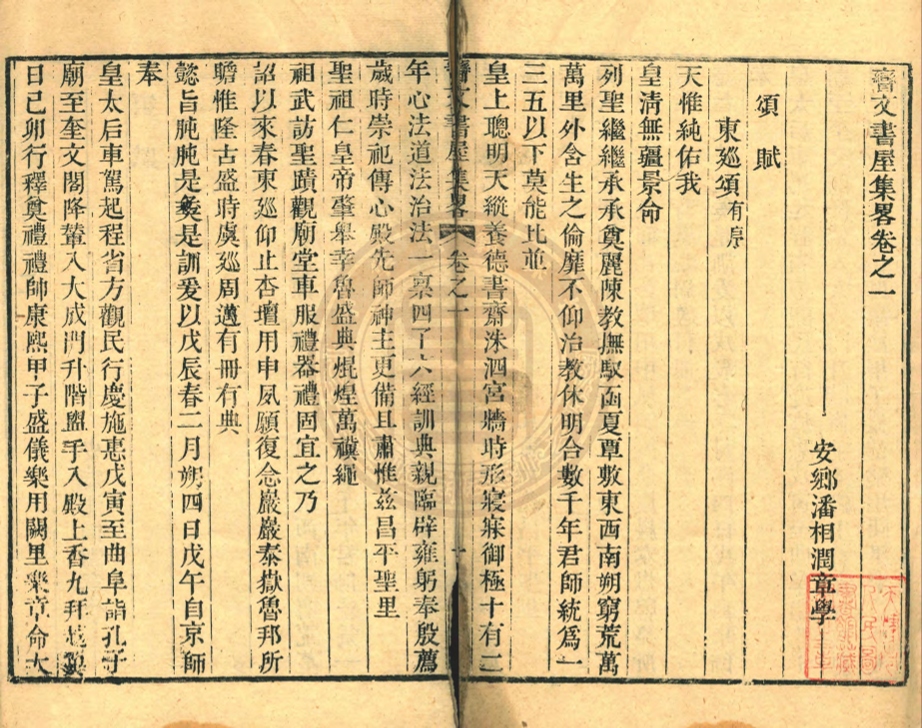 𦒱文書屋集畧卷之一
安鄉潘相潤章學
頌賦
東廵頌有序
天惟純佑我
皇清無疆景命
列聖繼繼承承奠麗陳教撫馭函夏覃敷東西南朔窮荒萬
萬里外含生之倫靡不仰治教休明合數千年君師統爲一
三五以下莫能比並
皇上聰明天縱養德書齋洙泗宮牆時形寢寐御極十有二
文書屋集畧 卷之一 一
年心法道法治法一稟四子六經訓典親臨辟雍躬奉殷薦
歲時崇祀傳心殿先師神主更備且肅惟兹昌平聖里
聖祖仁皇帝肇舉幸魯盛典焜煌萬禩繩
祖武訪聖蹟觀廟堂車服禮器禮固宜之乃
詔以來春東廵仰止杏壇用申夙願復念巖巖泰嶽魯邦所
瞻惟隆古盛時虞廵周邁有冊有典
懿旨肫肫是彝是訓爰以戊辰春二月朔四日戊午自京師
奉
皇太后車駕起程省方觀民行慶施惠戊寅至曲阜詣孔子
廟至奎文閣降輦入大成門升階盥手入殿上香九拜越翼
日己卯行釋奠禮禮師康熙甲子盛儀樂用闕里樂章命大